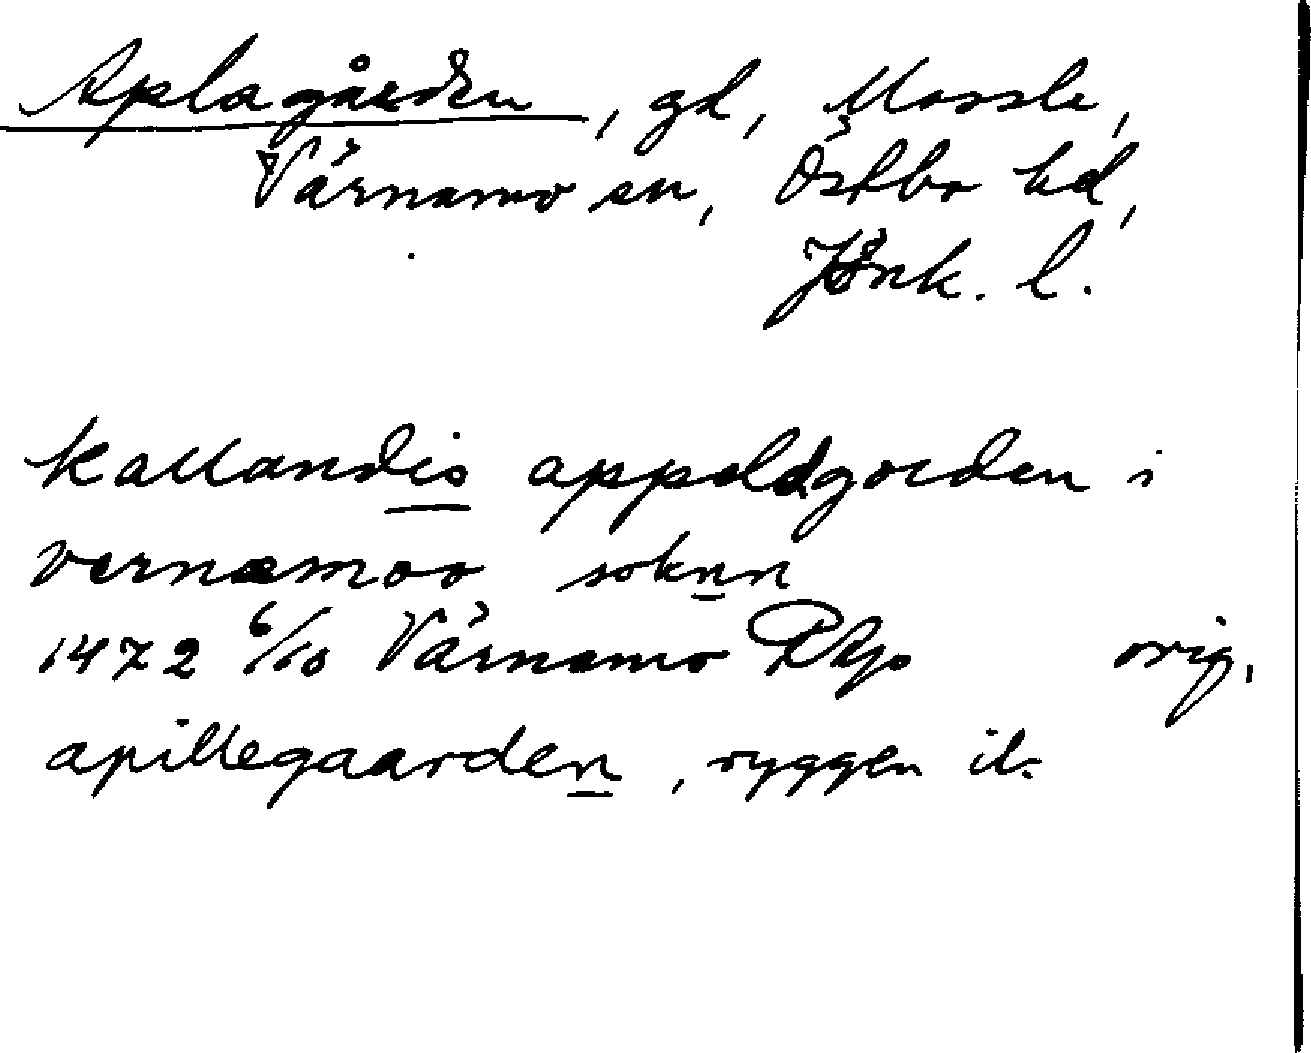 Aplagården, gd, Mossle,
Värnamo sn, Östbo hd,
Jönk. l.
kallandis appeldgorden i
vernæmoo soknn
1472 6/10 Värnamo RAp orig.
apillegaarden, ryggen ib.